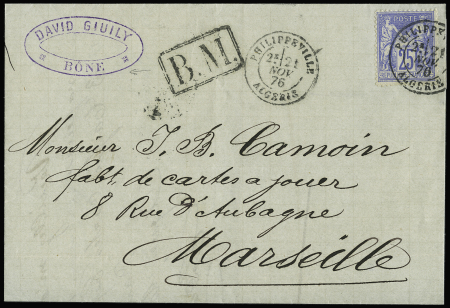 DAVID GIUILY
BÔNE
B.M.
PHILIPPEVILLE
2E 21
NOV
76
ALGERIE
POSTE
25
PHILIPPEVILLE
2E 21
NOV
76
ALGERIE
Monsieur J. B. Camoin
fabt. de cartes a jouer
8 Rue d'Aubagne
Marseille